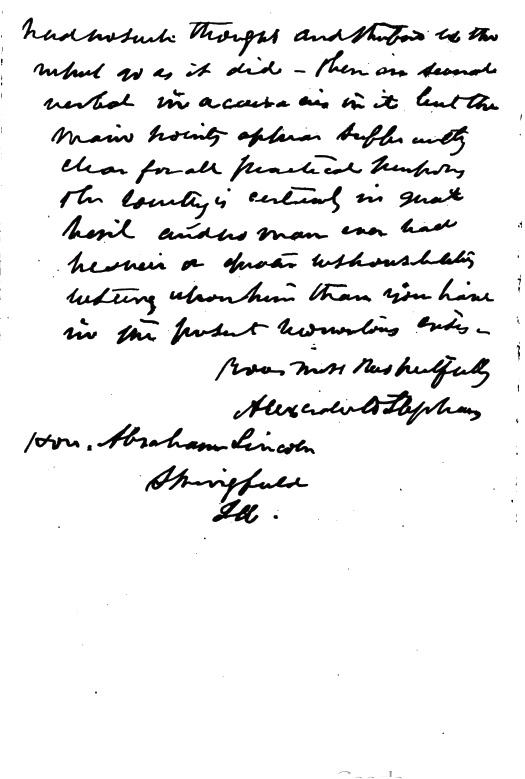 had no such thought and therefore let the
report go as it did – There are several
verbal inaccuracies in it but the
main points appear sufficiently
clear for all practical purposes
The Country is certainly in great
peril and no man ever had
heavier or greater responsibilities
resting upon him than you have
in the present momentous crisis –
Yours most Respectfully
Alexander H Stephens
Hon. Abraham Lincoln
Springfield
Ill.